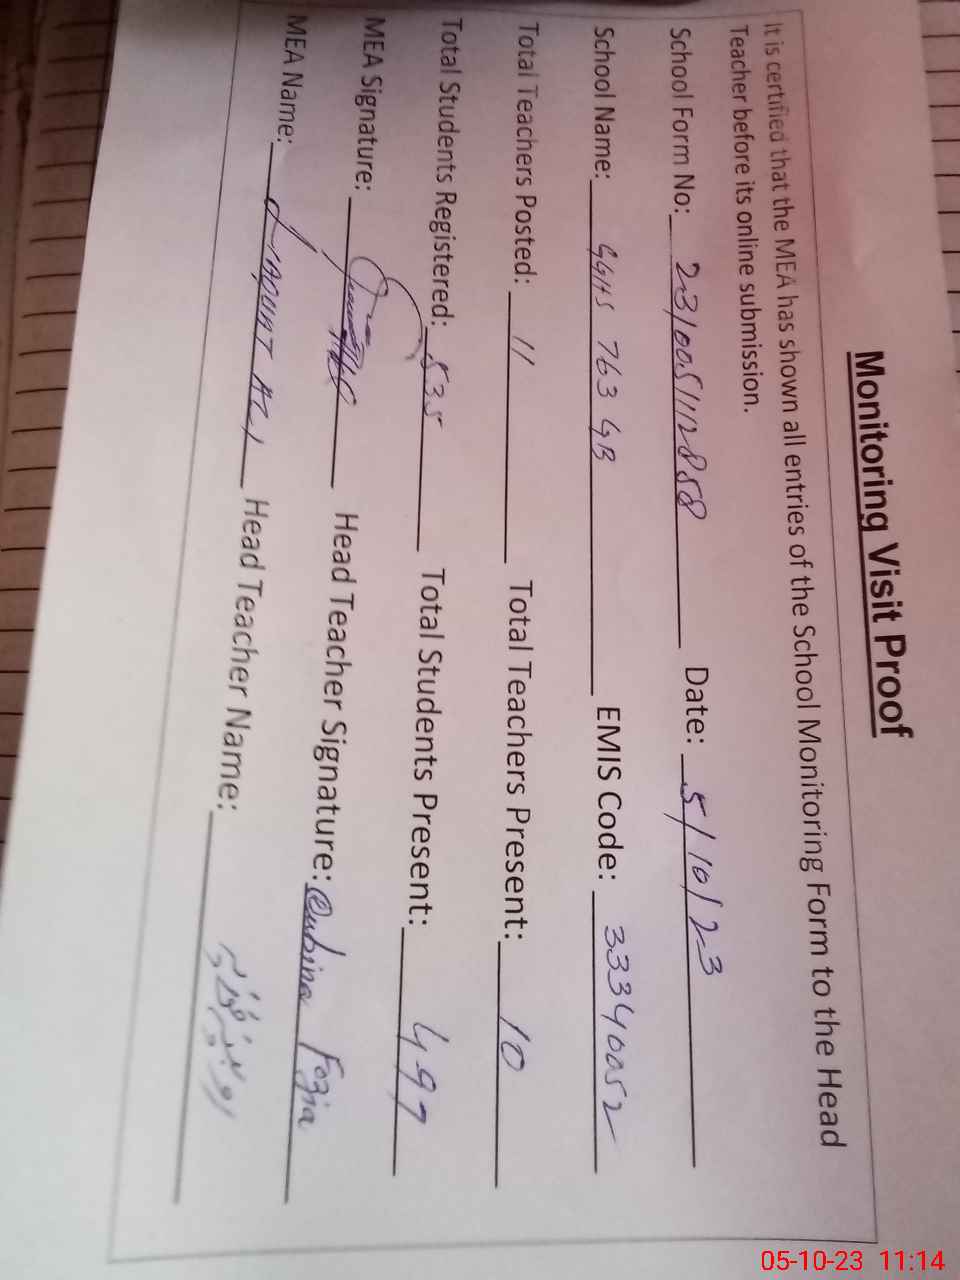 Monitoring Visit Proof
It is certified that the MEA has shown all entries of the School Monitoring Form to the Head
Teacher before its online submission.
School Form No: 231005112858 Date: 5/10/23
School Name: GGHS 763 GB EMIS Code: 33340052
Total Teachers Posted: 11 Total Teachers Present: 10
Total Students Registered: 535 Total Students Present: 497
MEA Signature: Head Teacher Signature: Rubina Fozia
MEA Name: LIAQUAT ALI Head Teacher Name: روبینہ فوزیہ
05-10-23 11:14